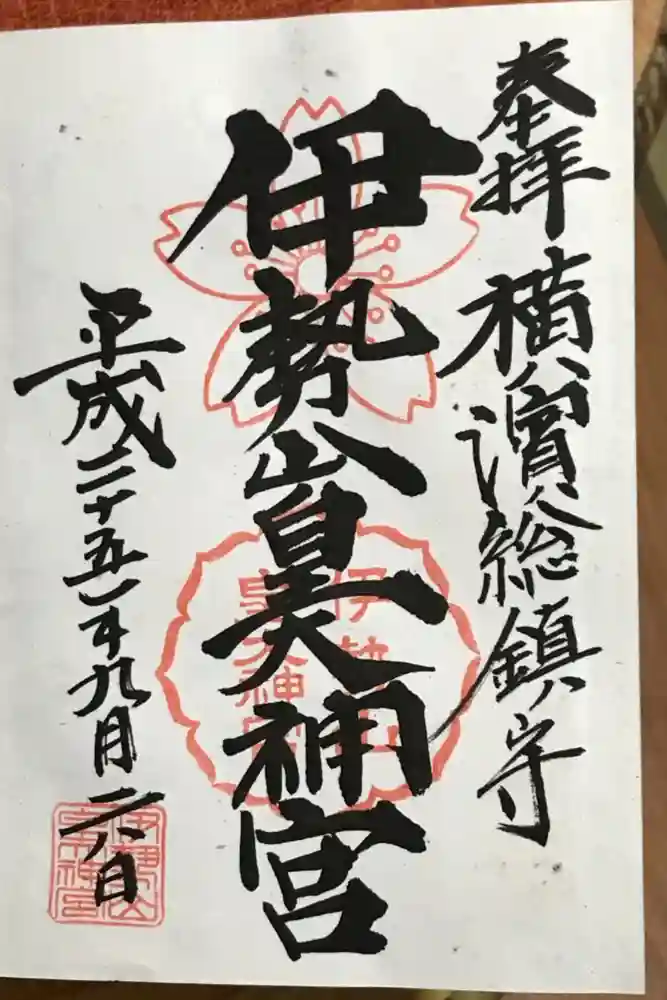 奉拝 横濱総鎮守
伊勢山皇大神宮
平成二十五年九月二八日
伊勢山
皇大神宮